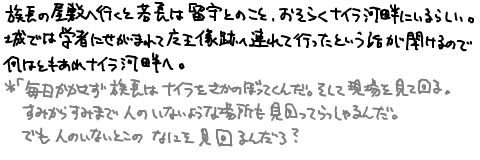 族長の屋敷へ行くと若長は留守とのこと、おそらくナイラ河畔にいるらしい。
城では学者にせがまれて左王像跡へ連れて行ったという話が聞けるので
何はともあれナイラ河畔へ。
*「毎日かかせず族長はナイラをさかのぼってくんだ。そして現場を見て回る。
すみからすみまで人のいないような場所も見回ってらっしゃるんだ。
でも人のいないとこの なにを見回るんだろ?